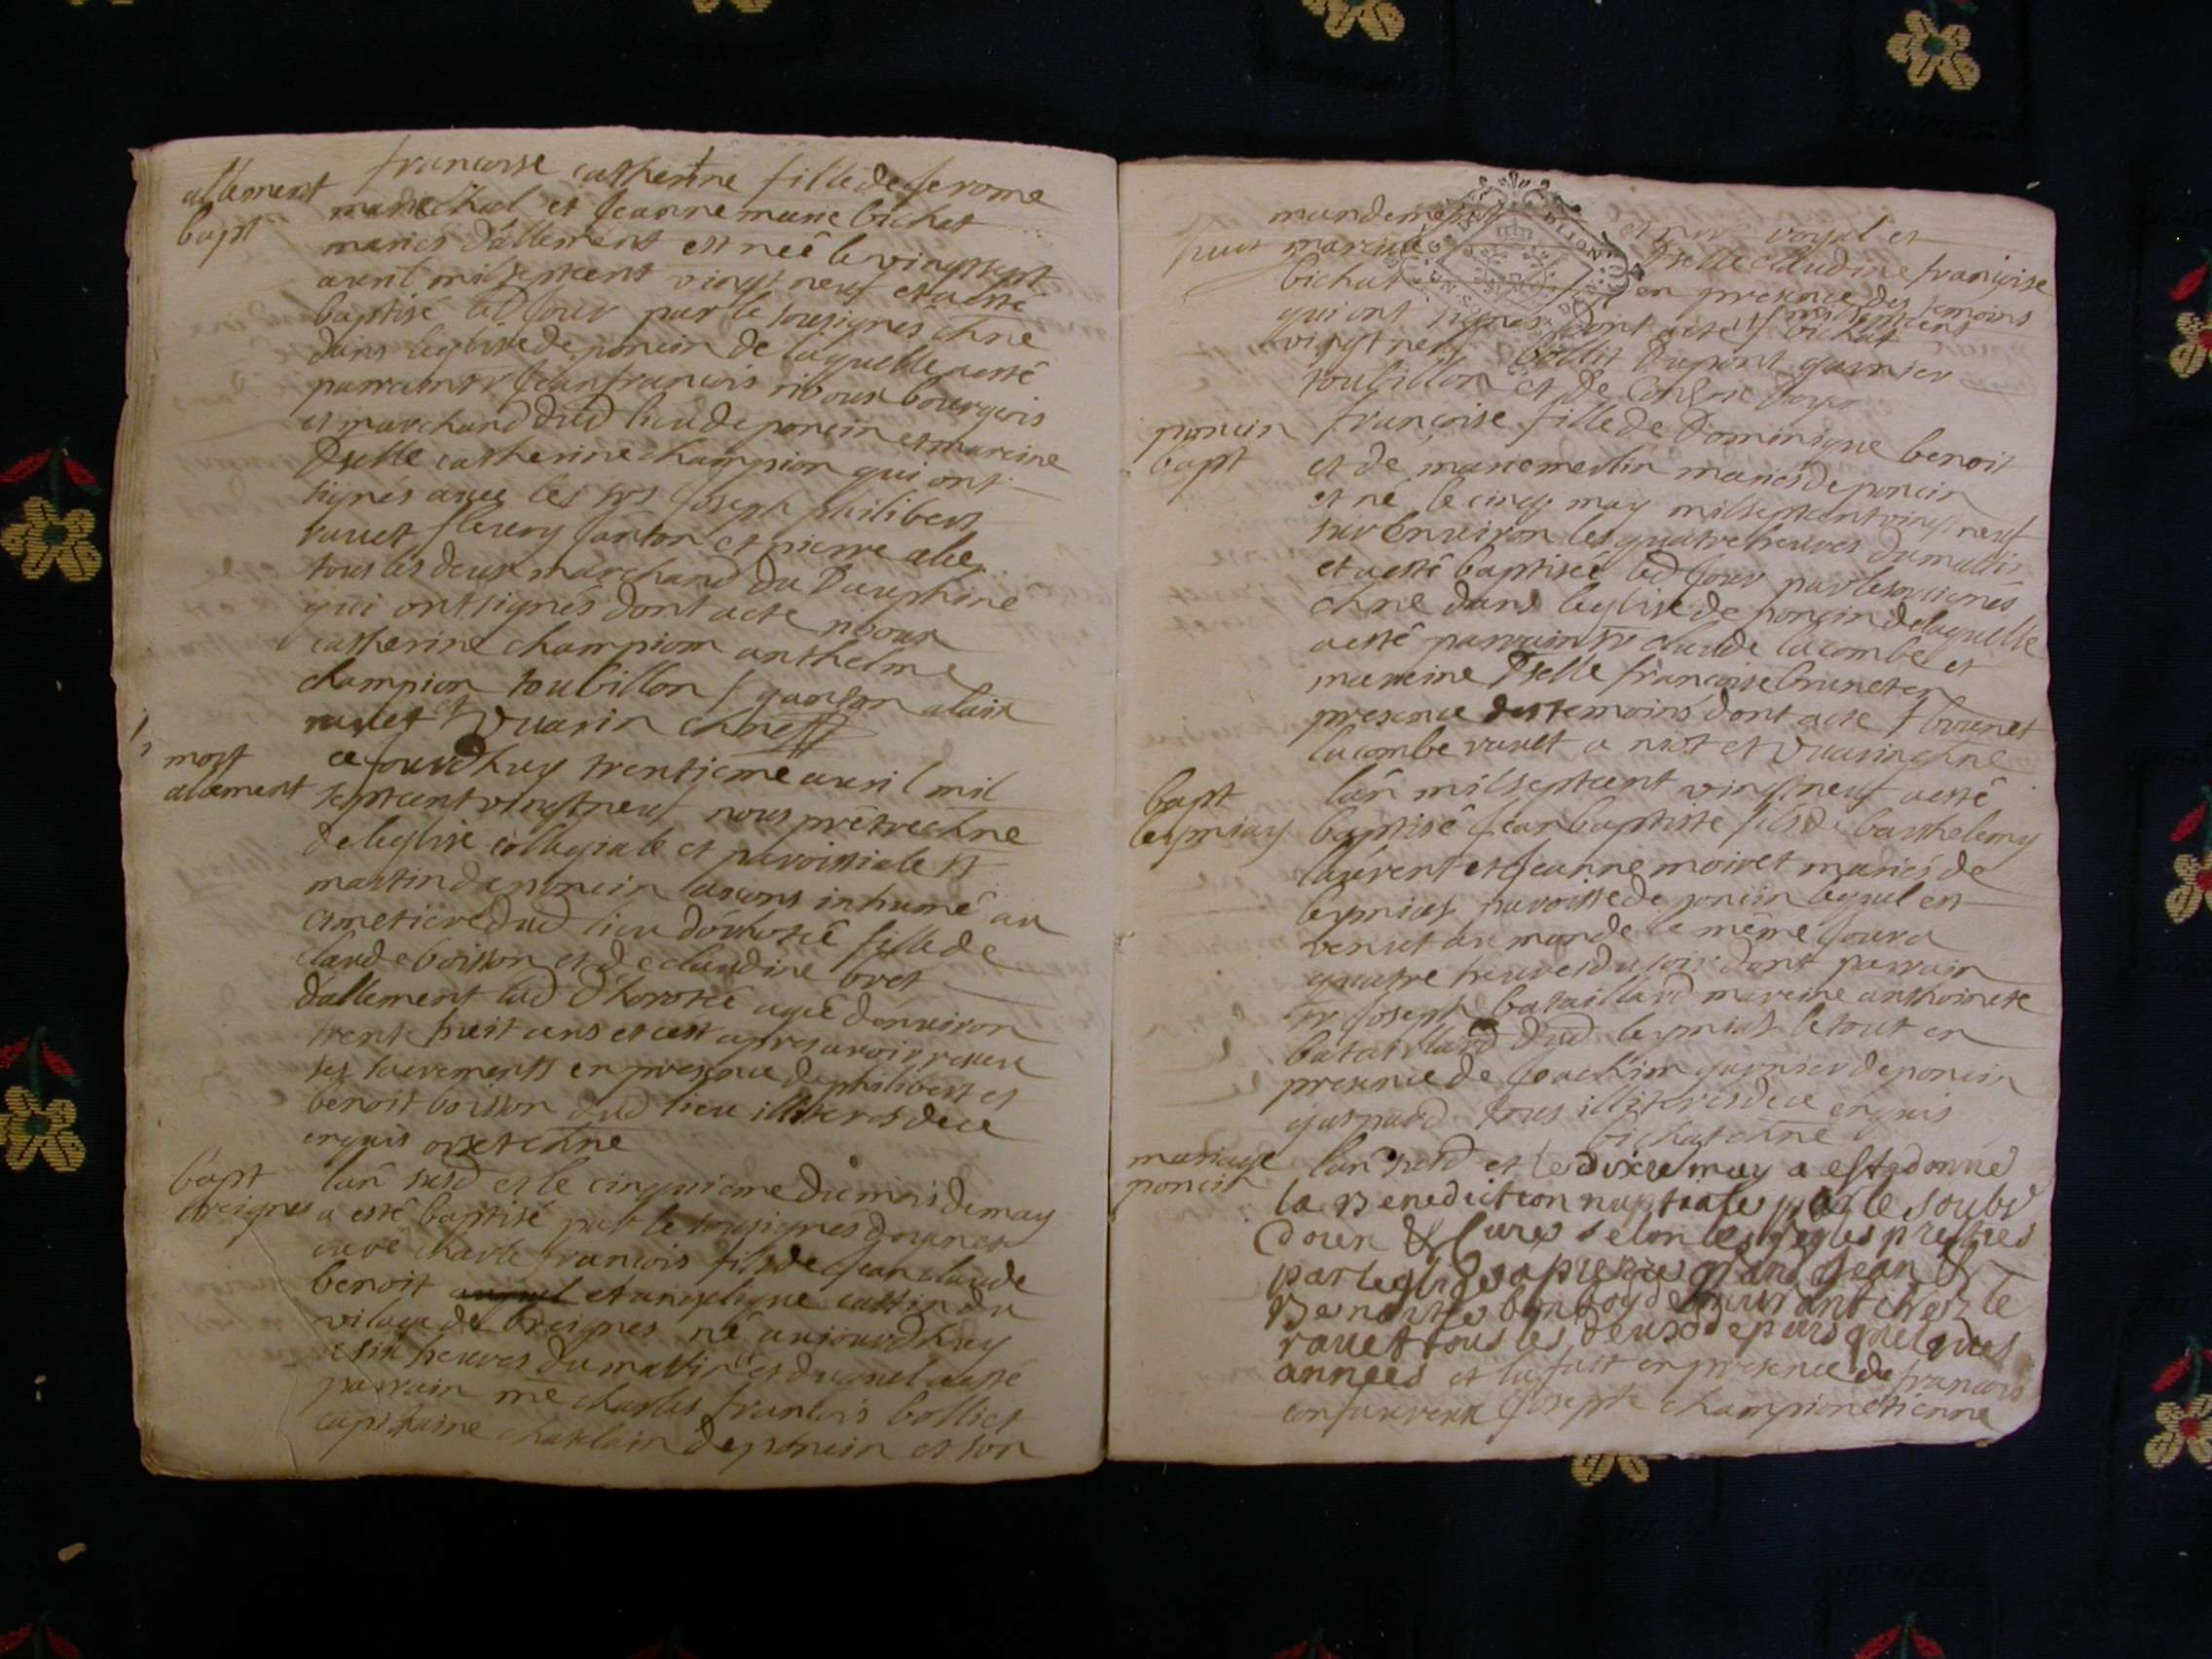 allement
bapt
francoise catherine fille de Jerome
marechal et Jeanne marie bichat
maries d'allement est neé le vingt sept
avril mil septcent vingt neuf et a esté
baptisé led Jour par le sousignés chne
dans leglise de poncin de laquelle a esté
parrain sr Jean francois riboux bourgois
et marchand dud lieu de poncin et mareine
Dselle catherine champion qui ont
signés avec les srs Joseph philibert
ravet fleury Janton et pierre alex
tous les deux marchand du Dauphine
qui ont signés dont acte riboux
catherine champion anthelme
champion toubillon
ravet et Vuarin chne
mort
allement
ce Jourdhuy trentieme avril mil
septcent vingt neuf nous prêtre chne
de leglise collegiale et paroissiale st
martin de poncin avons inhumé au
cimetiere dud lieu dorhoteé fille de
claude boisson et de claudine bret
dallement lad dhoroteé ageé d'environ
trent huit ans et cest apres avoir receu
ses sacrements en presence de philibert et
benoit boisson dud lieu illiteres de ce
enquis orset chne
bapt
breignes
lân susd et le cinquieme du mois de may
a esté baptisé par le sousignés doyen et
curé charle francois fils de Jean claude
benoit et angelique cattin du
vilage de breignes né aujourdhuy
a six heures du matin et duquel a esté
parrain me charles francois bolliet
capitaine chatelain de poncin et son
mandement et voyal et
mareine Dselle claudine françoise
bichat en presence des temoins
qui ont signés dont acte mil septcens
vingt neuf bolliet Dupont garnier
toubillon et De doyen
poncin
bapt
françoise fille de Dominique benoit
et de marie merlin mariés de poncin
et né le cinq may mil septcent vingt neuf
sur environ les quatre heures du matin
et a esté baptiseé led Jour par le sousignés
chne dans leglise de poncin de laquelle
a esté parrain sr claude lacombe et
mareine Dselle francoise brunet en
presence des temoins dont acte f brunet
lacombe ravet a niot et Vuarin chne
bapt
leymiay
lân mil septcent vingt neuf a esté
baptisé Jean baptiste fils de barthelemy
laurent et Jeanne moiret mariés de
leymias paroisse de poncin lequel est
venut au monde le même Jour a
quatre heures du soir dont parrain
sr Joseph bataillard mareine anthoinete
bataillard dud leymias le tout en
presence de Joachim garnier de poncin
gaspard tous illiteres de ce enquis
bichat chne
mariage
poncin
lân susd et le dixie may a esté donné
la Benediction nuptiale par le soubs
doien & Curé selon les regles prescrites
par leglise a pierre grand Jean &
Benoiste bonboy demeurant chez le
ravet tous les deux depuis quelques
annees et la fait en presence de francois
Joseph champion etienne